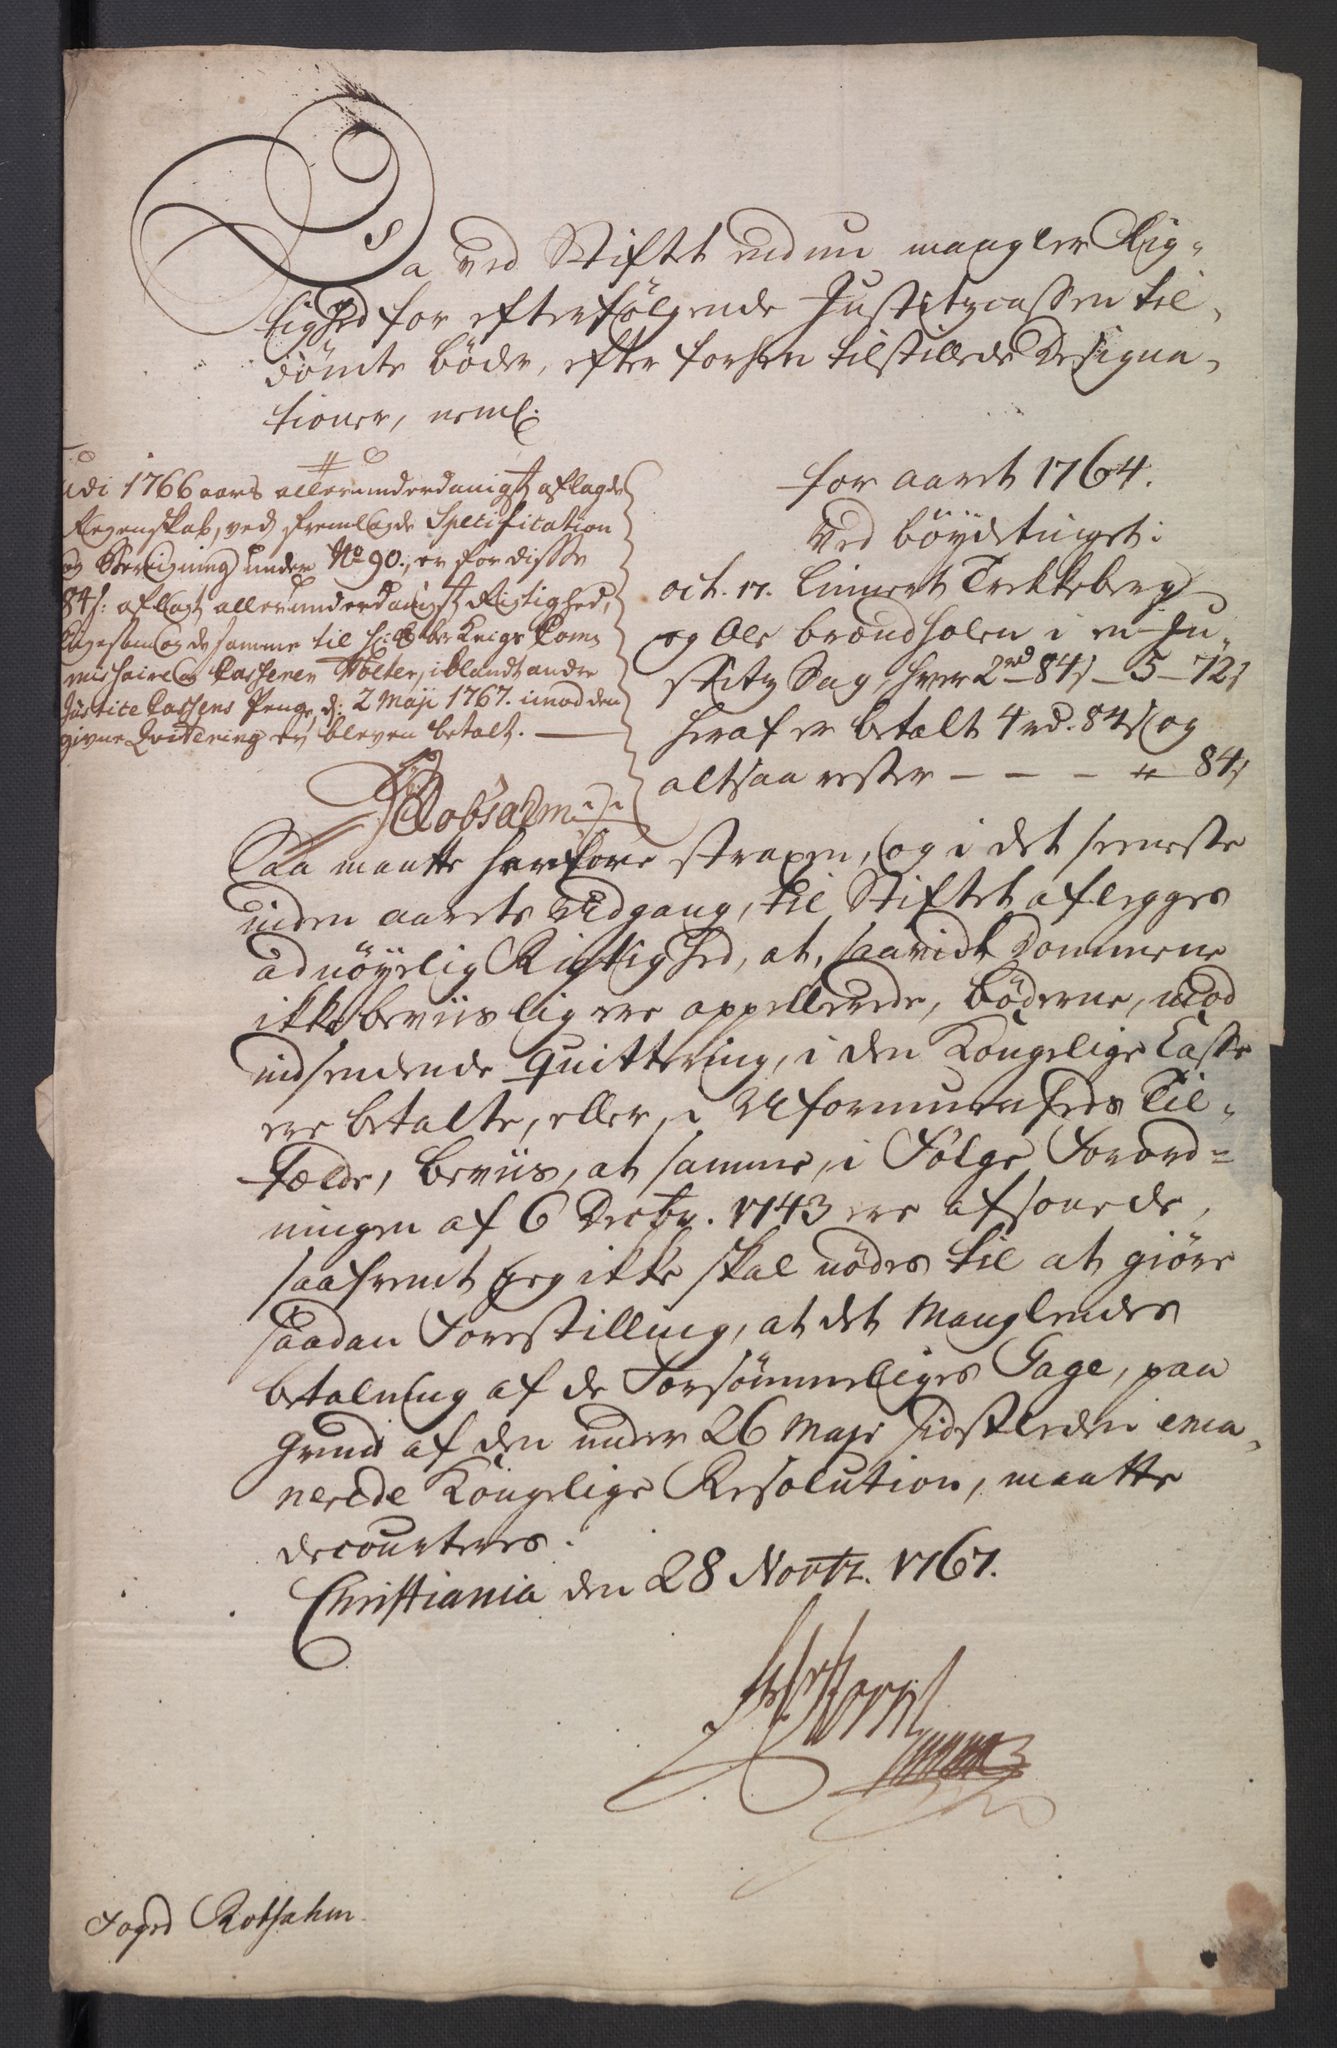 Da ved Stiftet endnu mangler Rig-
tighed for efterfølgende Justitzcassen til-
dömte böder, efter forhen tilstillede Designa-
tioner, neml.
for aaret 1764.
Ved böydetinget:
oct. 17. Linnert Trekkeberg
og Ole brændholen i en Ju-
stitz Sag, hver 2 rd 84 s – 5 – 72 s
heraf er betalt 4 rd. 84 s og
altsaa rester – – – " 84 s
Udi 1766 aars allerunderdanigst aflagde
Regenskab, ved fremlagde Specification
og Beregning under No 90, er for disse
84 s: aflagt allerunderdanigst Rigtighed,
ligesom og de samme til Hr. Ober Krigs Kom-
missaire og Casserer Holter, iblandt andre
Justice Cassens Penge, d: 2 Maji 1767. imod den
givne Qvittering er bleven betalt. –
Robsahm
Saa maatte herfore straxen, og i det seeneste
inden aarets Udgang, til Stiftet aflegges
adnöyelig Rigtighed, at, saavidt Dommene
ikke beviislig ere appellerede, böderne, mod
indsendende Quittering, i den Kongelige Casse
ere betalte, eller, i Uformuenheds Til-
fælde, beviis, at samme, i Følge Forord-
ningen af 6 Decbr. 1743 ere afsonede,
saafremt jeg ikke skal nödes til at giöre
saadan Forestilling, at det Manglendes
betalning af de Forsömmeliges Gage, paa
grund af den under 26 Maji sidstleden ema-
nerede Kongelige Resolution, maatte
decourteres.
Christiania den 28 Novbr. 1767.
Foged Robsahm.